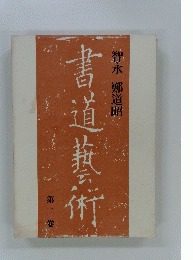 智永 鄭道昭
書道藝術
第一巻